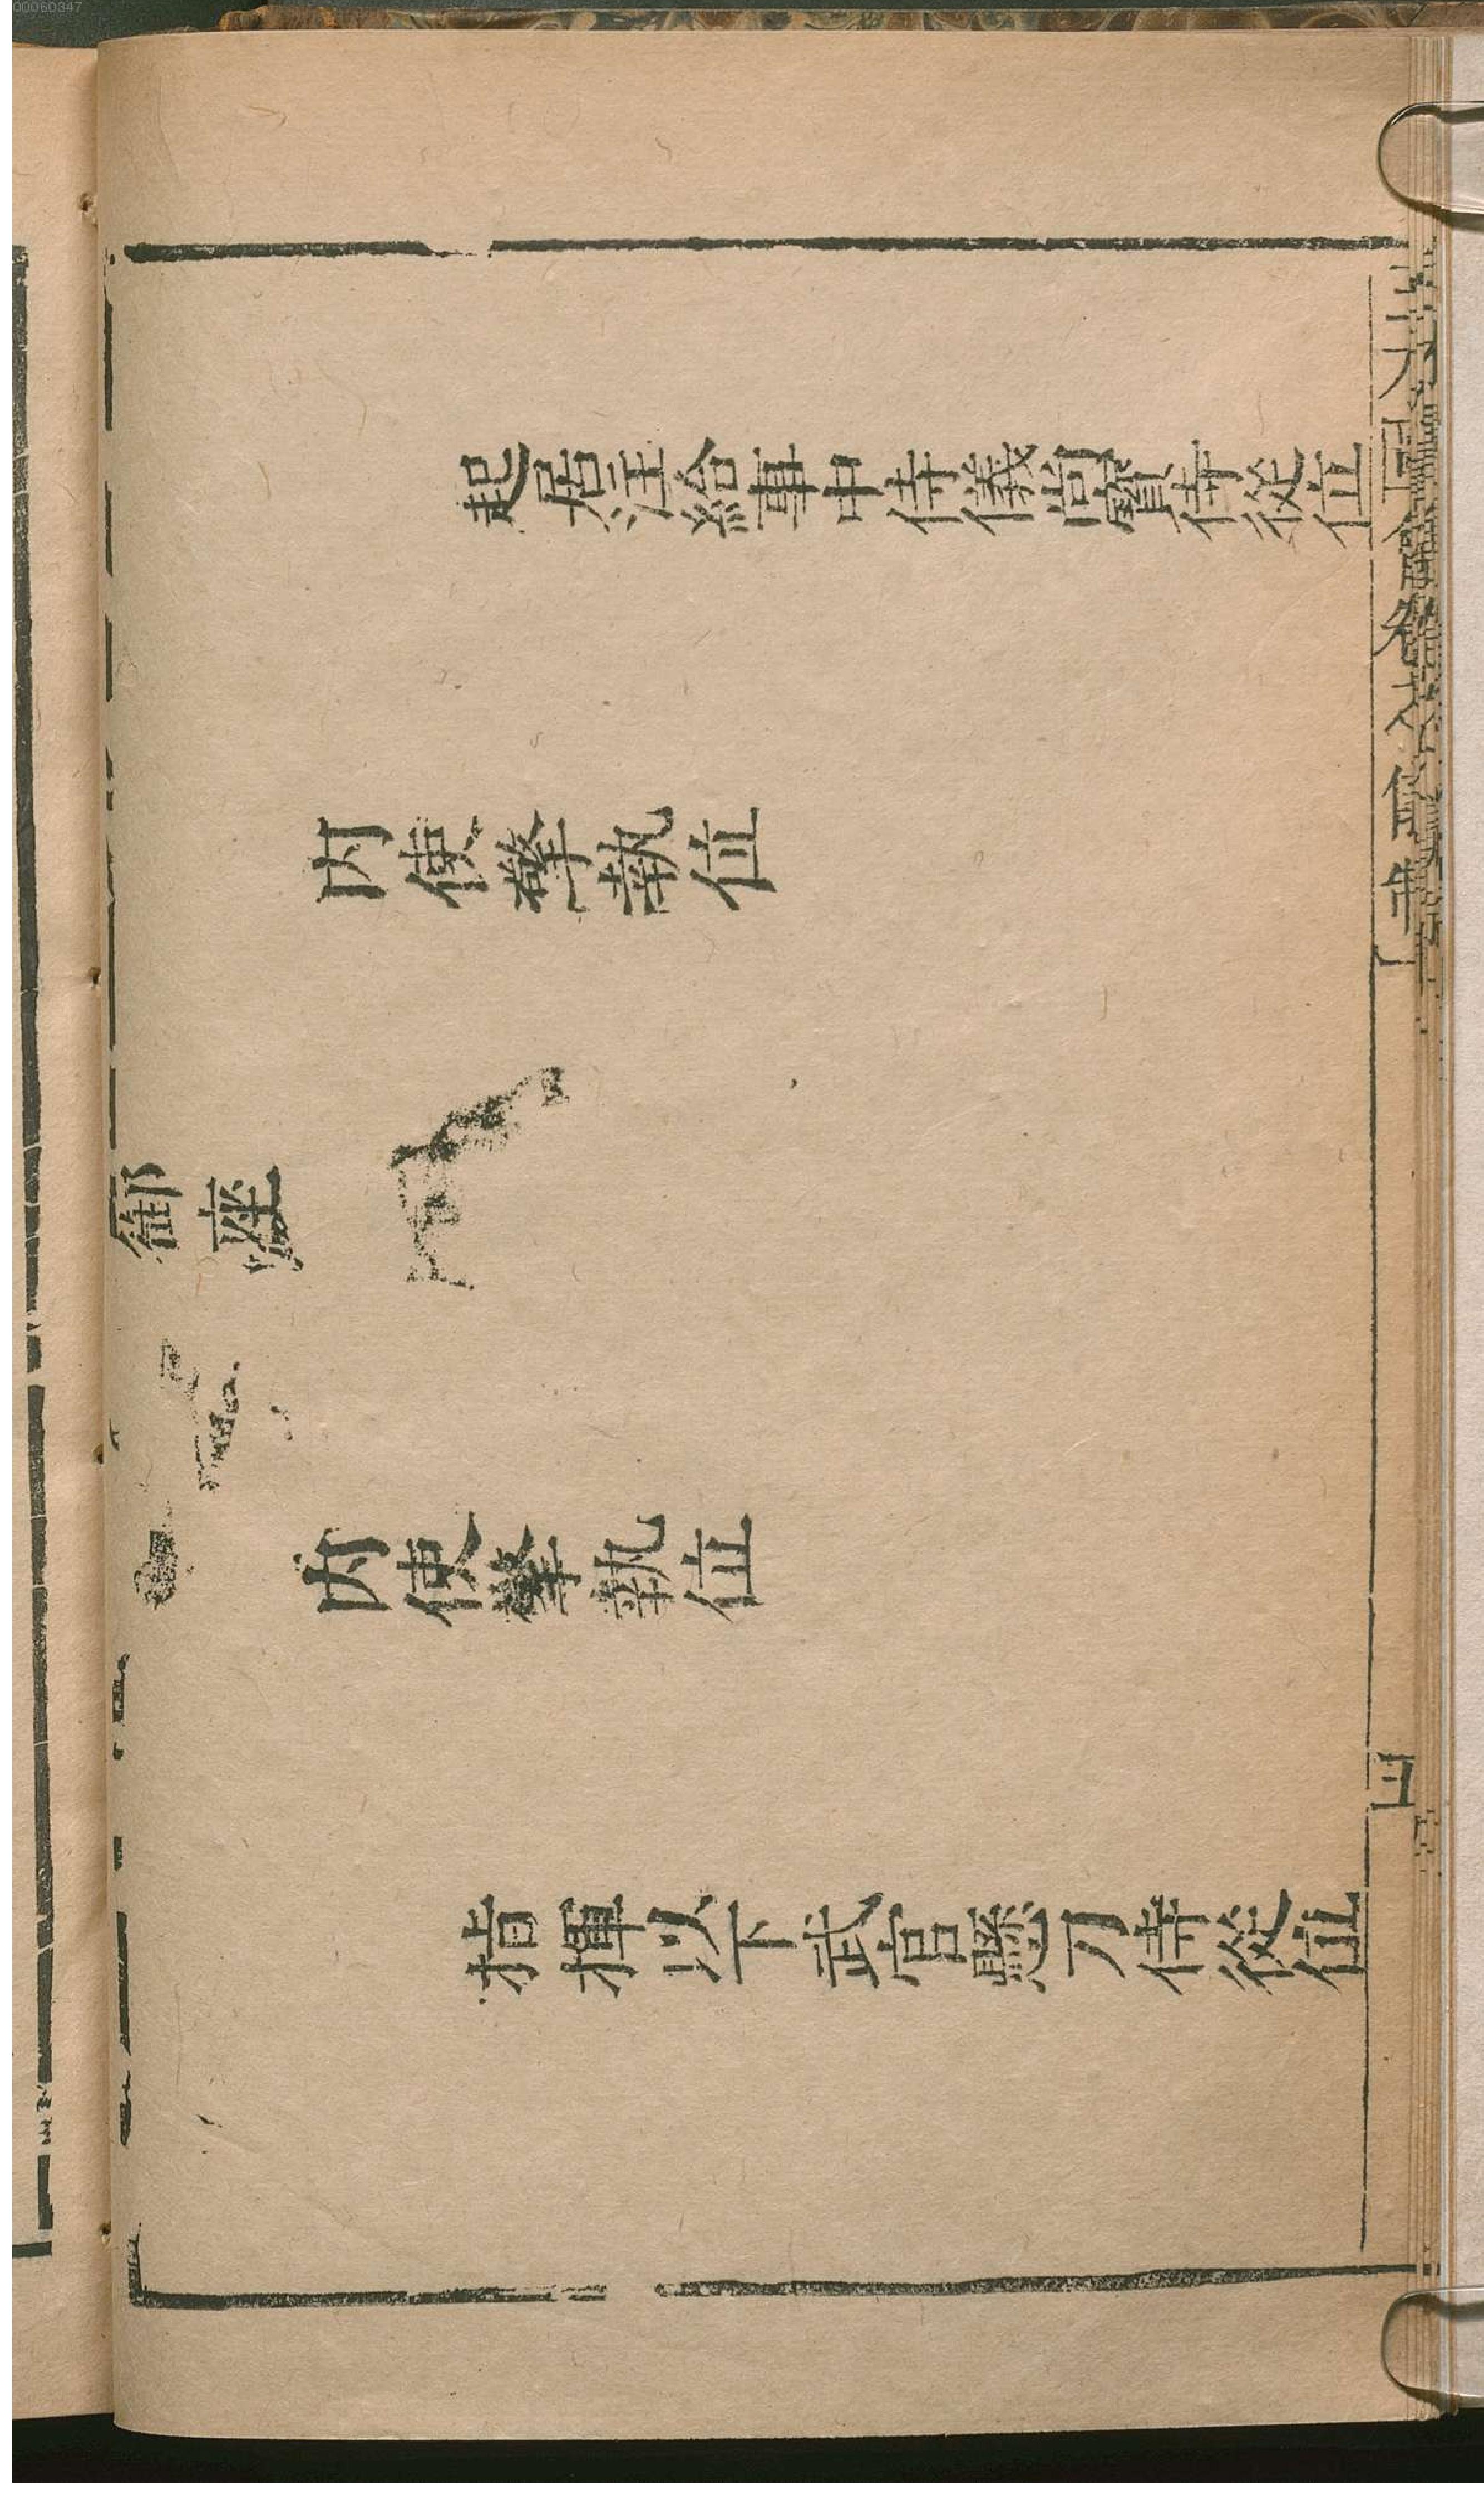 00060347
三才圖會 儀制
起居注給事中侍儀尚寶侍從位
內使擎執位
御座
內使擎執位
指揮以下武官懸刀侍從位